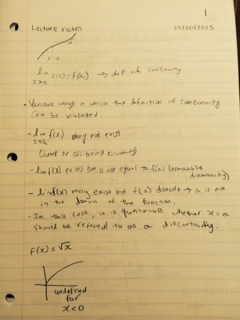 1
Lecture notes
x=a
lim f(x) = f(a) → def. of continuity
x→a
• Various ways in which the definition of continuity
can be violated
- lim f(x) may not exist
x→a
(jump or oscillating discontinuity)
- lim f(x) exists but is not equal to f(a) (removable
discontinuity)
- lim f(x) may exist but f(a) doesn't → a is not
in the domain of the function.
- In this case, it is questionable whether x=a
should be referred to as a discontinuity.
f(x)=√x
undefined
for
x<0